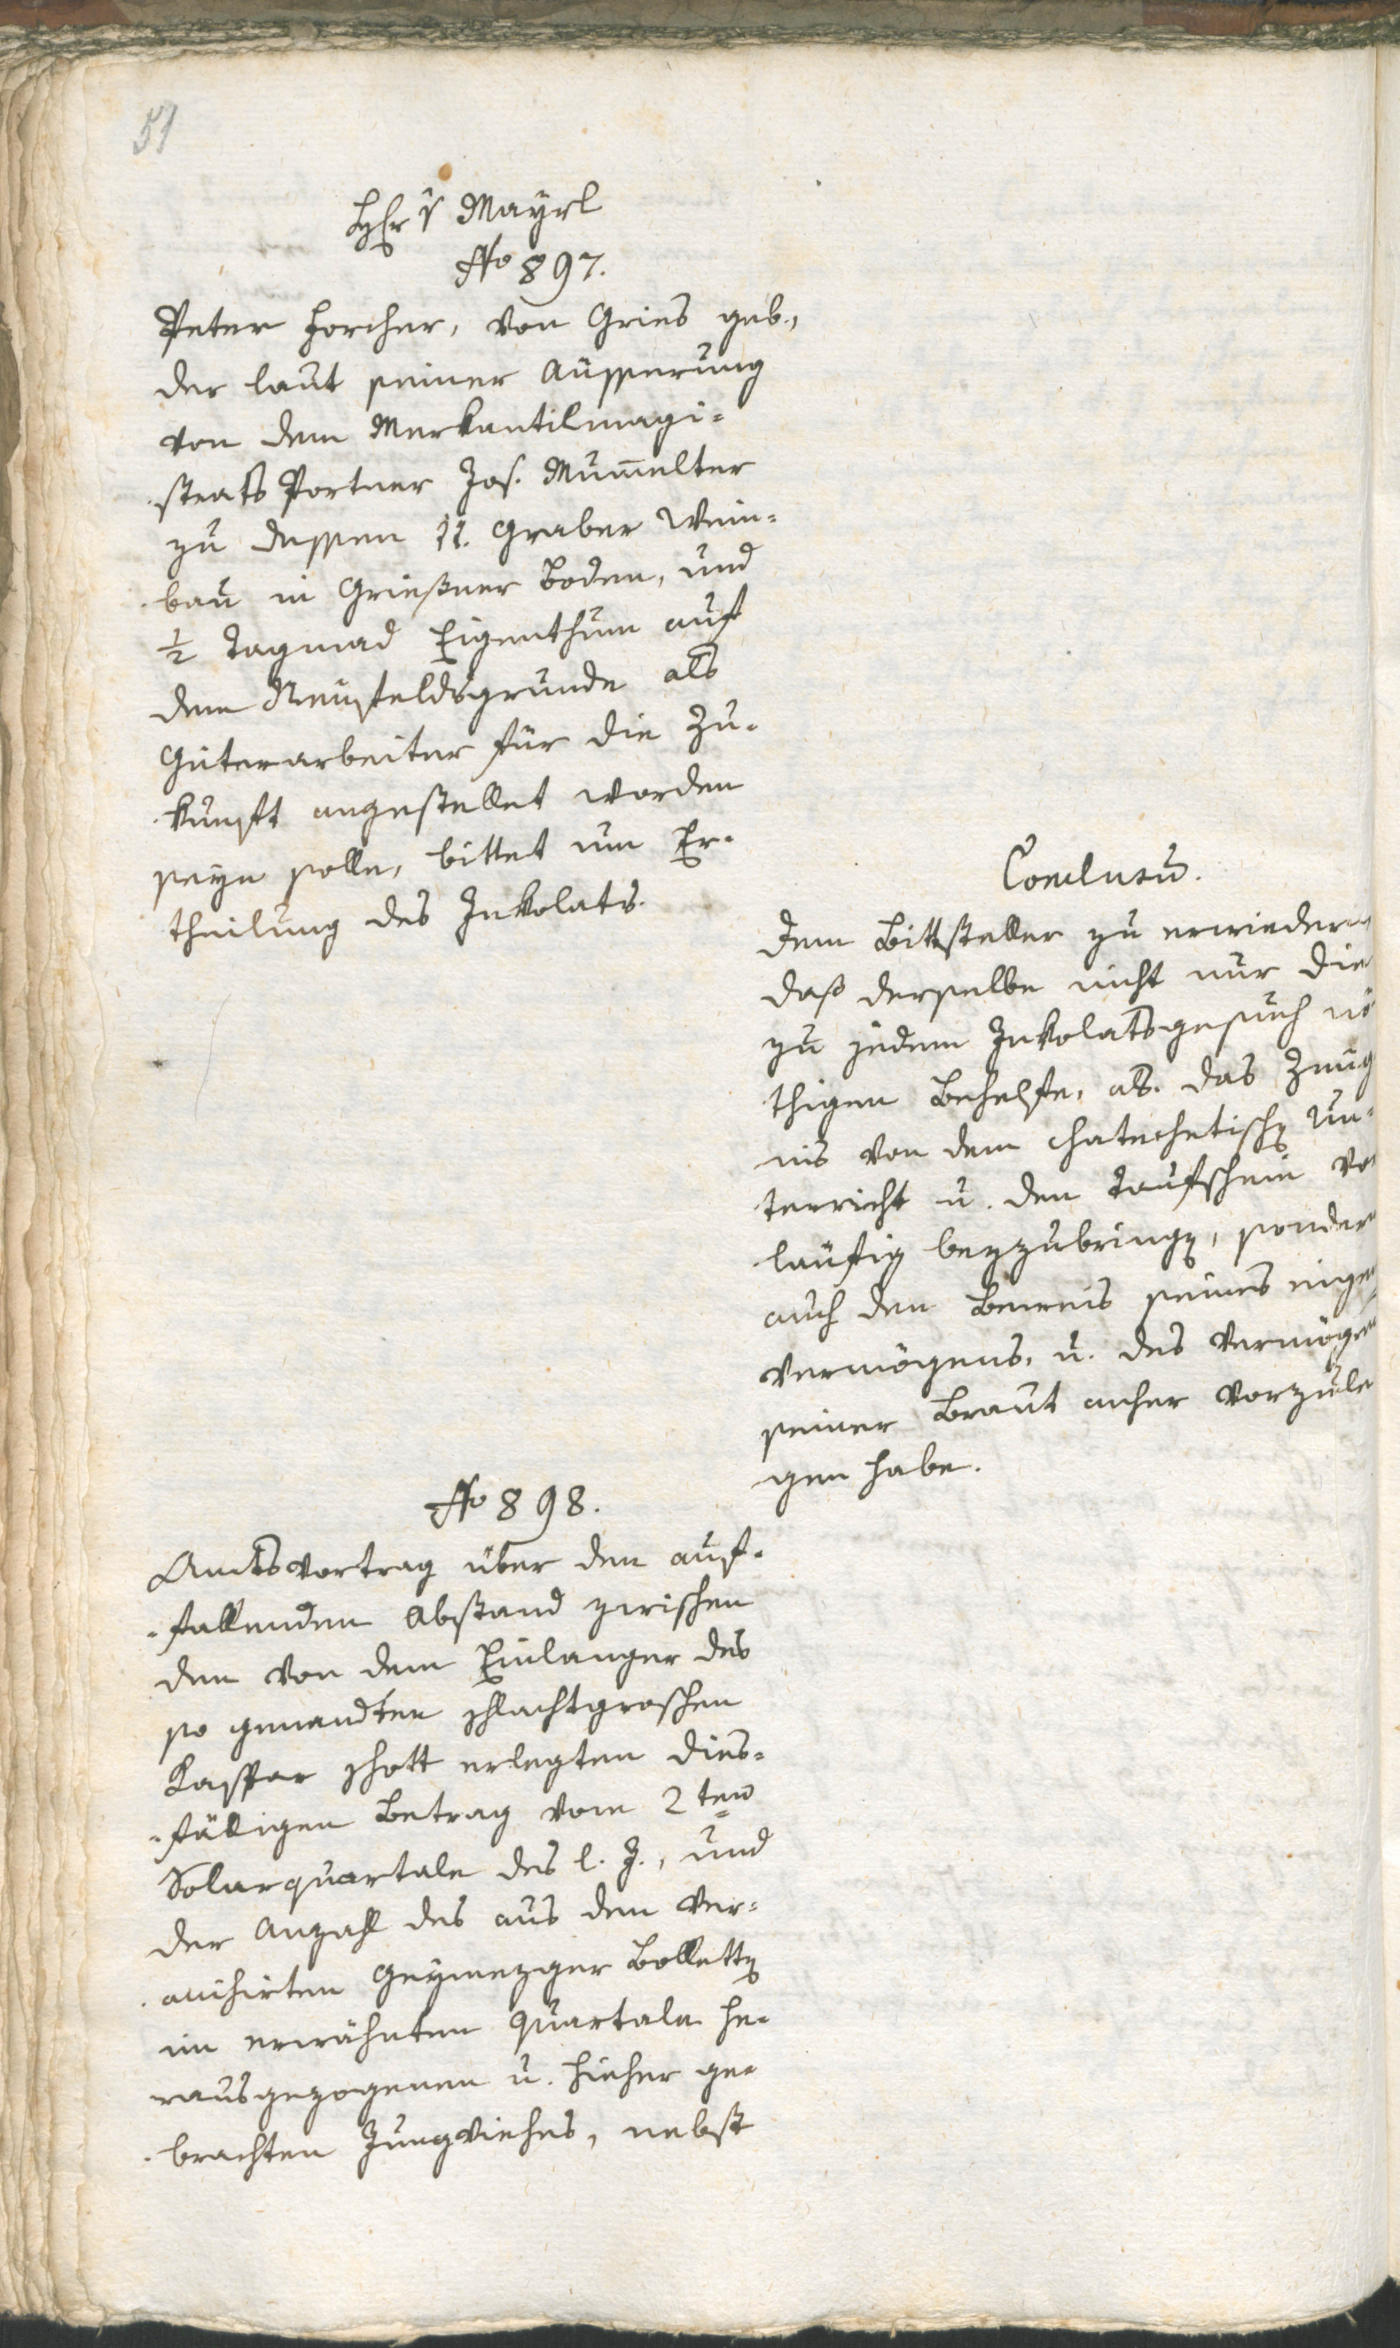 51
Hr v Mayrl
No 897.
Peter Forcher, von Gries geb.,
der laut seiner Äusserung
von dem Merkantilmagi=
strats Portner Jos. Mum̄elter
zu dessen 11. Graber Wein=
bau in Grießner Boden, und
½ Tagmad Eigenthum auf
dem Neufeldsgrunde als
Güterarbeiter für die Zu=
kunft angestellet worden
seyn solle, bittet um Er=
theilung des Inkolats.
Conclusū.
Dem Bittsteller zu erwiedern
daß derselbe nicht nur die
zu jedem Inkolatsgesuch nö
thigen Behelfe, als. das Zeug
nis von dem chatechetischen Un=
terricht u. den Taufschein vor
läufig beyzubringen, sondern
auch den Beweis seines eigen
Vermögens, u. des Vermögens
seiner Braut anher vorzule
gen habe.
No 898.
Amtsvortrag über den auf=
fallenden Abstand zwischen
den von dem Einlanger des
so genandten Schlachtgroschen
Kaspar Schott erlegten dies=
fälligen Betrag vom 2ten
Solarquartale des l. J., und
der Anzahl des aus dem Ver=
im erwähnten Quartale he=
rausgezogenen u. hieher ge=
brachten Jungviehes, nebst